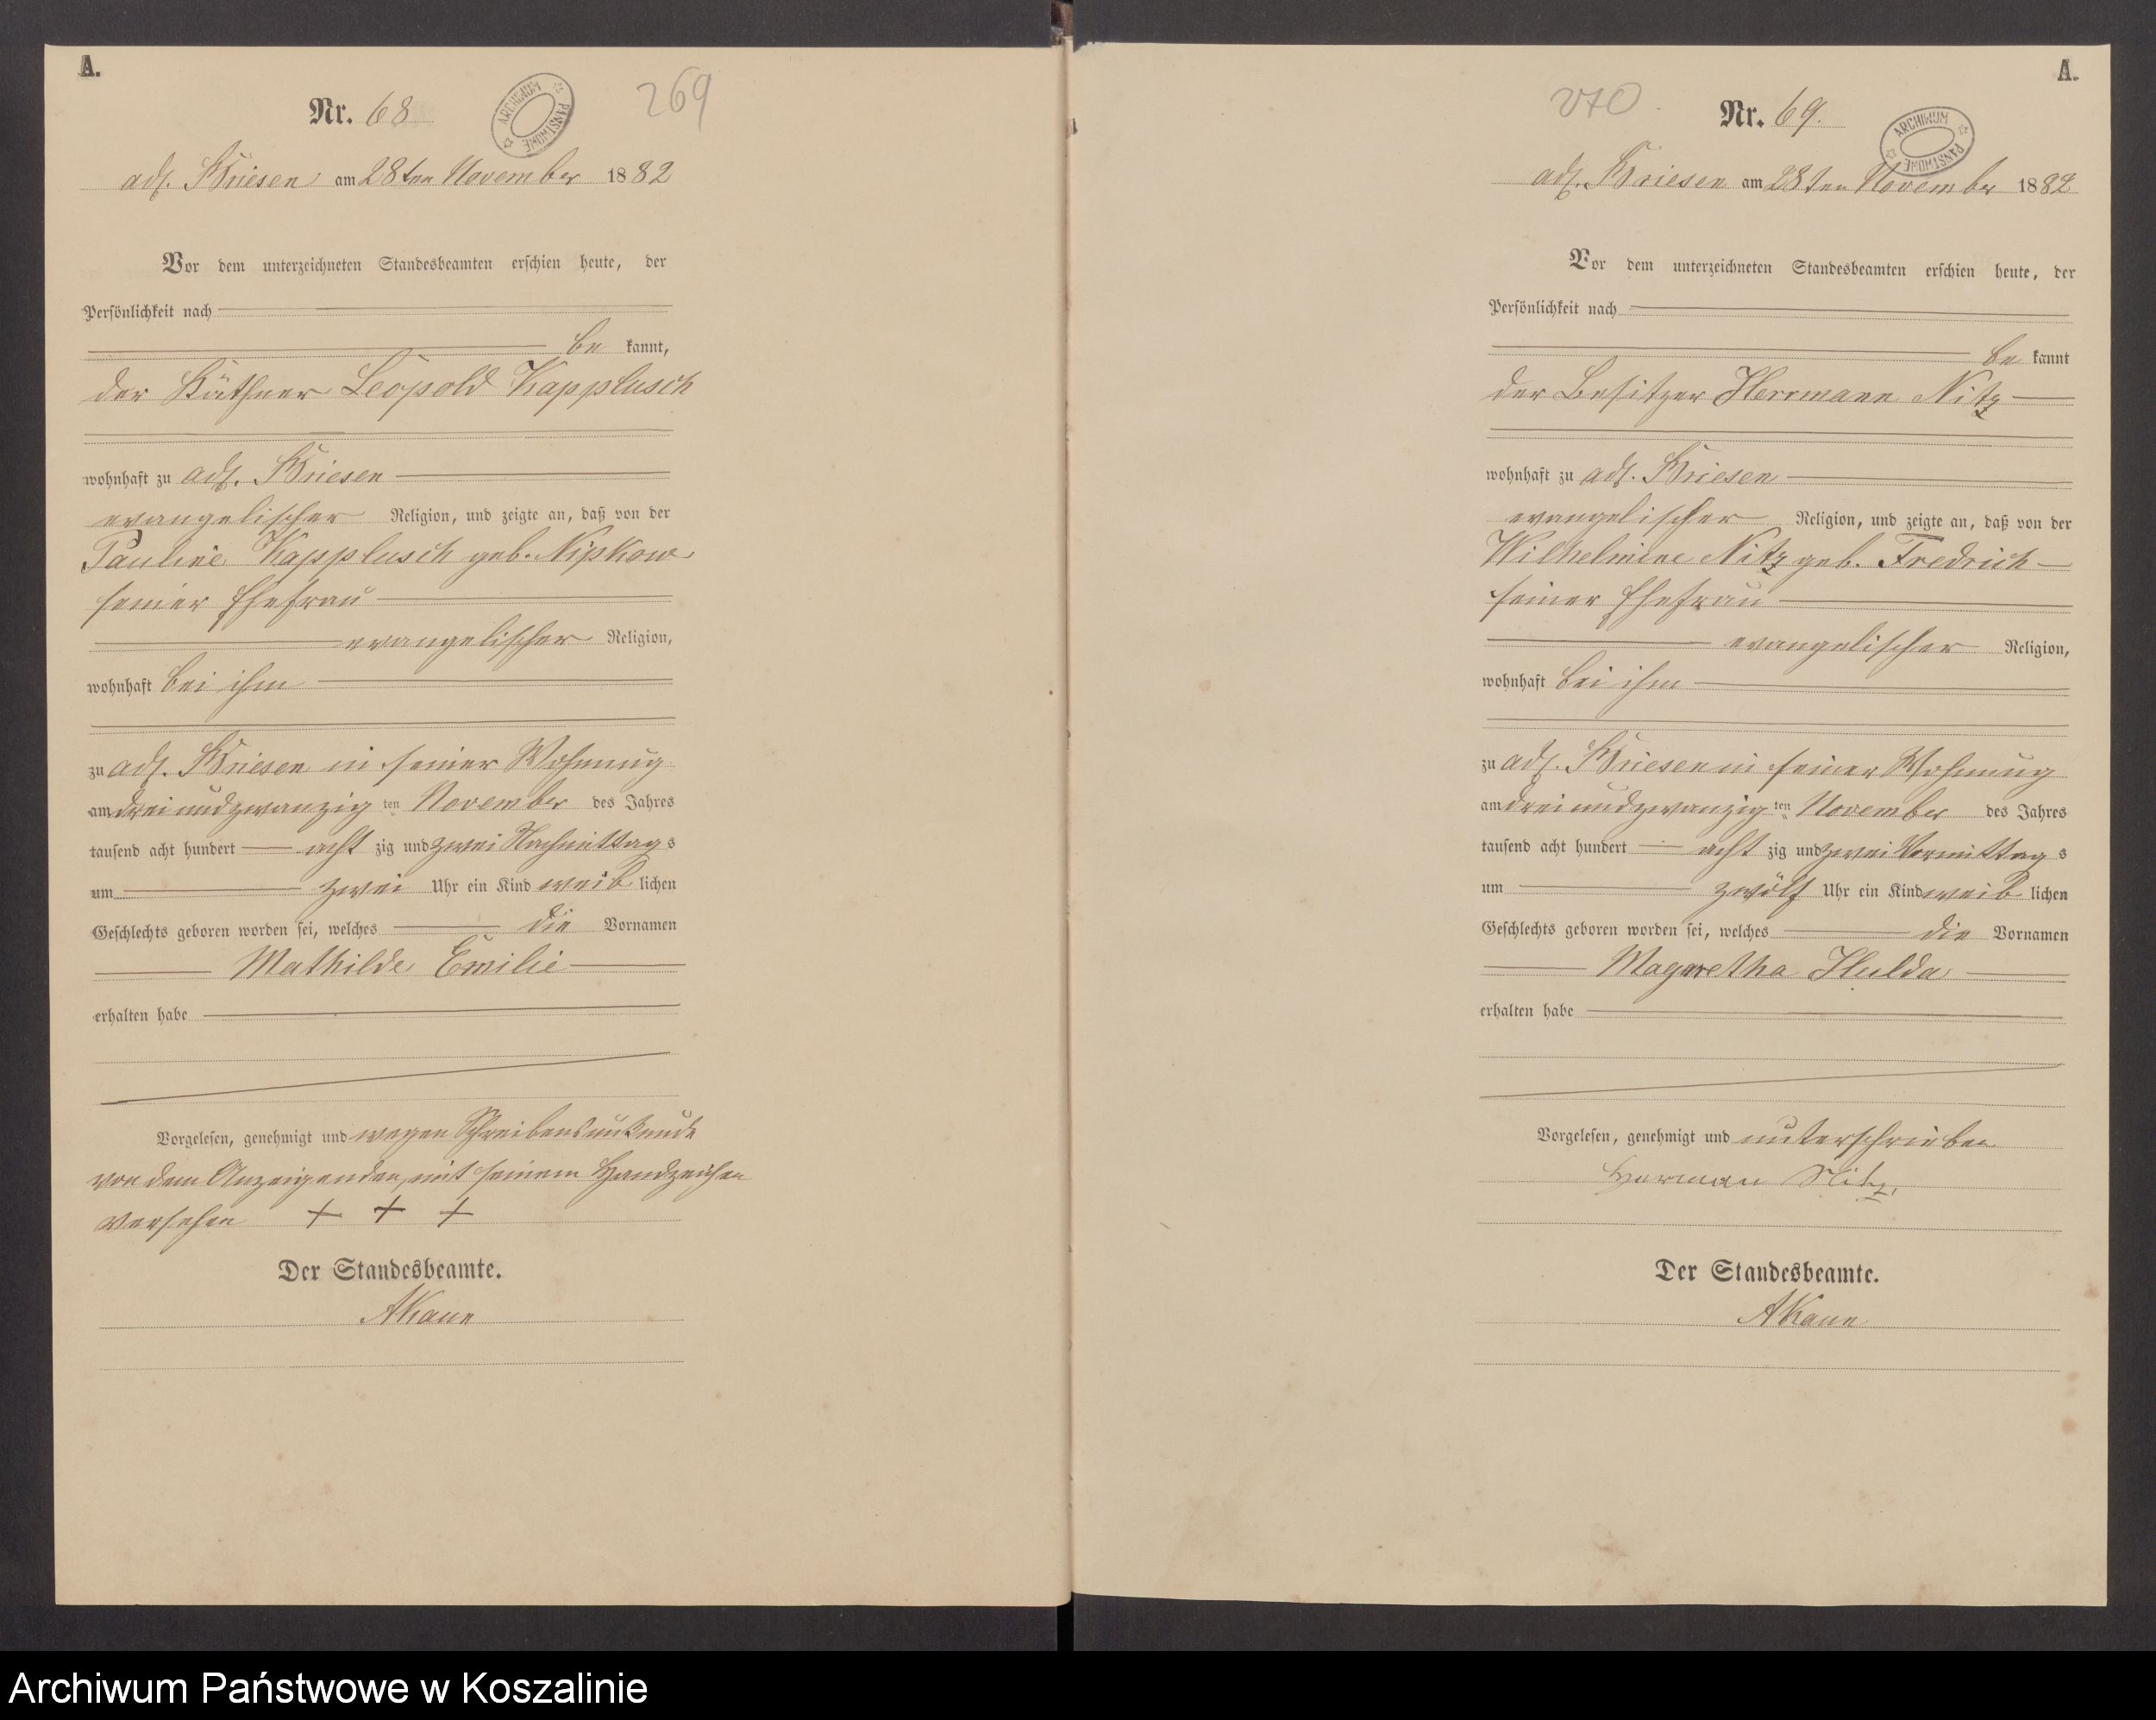 A.
Nr. 68
ARCHIWUM PAŃSTWOWE
269
adl. Briesen am 28ten November 1882
Vor dem unterzeichneten Standesbeamten erschien heute, der
Persönlichkeit nach
be kannt,
der Käthner Leopold Kapplusch
wohnhaft zu adl. Briesen
evangelischer Religion, und zeigte an, daß von der
Pauline Kapplusch geb. Nipkow
seiner Ehefrau
evangelischer Religion,
wohnhaft bei ihm
zu adl. Briesen in seiner Wohnung
am dreiundzwanzig ten November des Jahres
tausend acht hundert acht zig und zwei Nachmittags
um zwei Uhr ein Kind weib lichen
Geschlechts geboren worden sei, welches die Vornamen
Mathilde Emilie
erhalten habe
Vorgelesen, genehmigt und wegen Schreibensunkunde
von dem Anzeigenden, mit seinem Handzeichen
versehen + + +
Der Standesbeamte.
A.
270
Nr. 69.
ARCHIWUM PAŃSTWOWE
adl. Briesen am 28ten November 1882
Vor dem unterzeichneten Standesbeamten erschien heute, der
Persönlichkeit nach
be kannt
der Besitzer Herrmann Nitz
wohnhaft zu adl. Briesen
evangelischer Religion, und zeigte an, daß von der
Wilhelmine Nitz geb. Fredrich
seiner Ehefrau
evangelischer Religion,
wohnhaft bei ihm
zu adl. Briesen in seiner Wohnung
am dreiundzwanzig ten November des Jahres
tausend acht hundert acht zig und zwei Vormittags
um zwölf Uhr ein Kind weib lichen
Geschlechts geboren worden sei, welches die Vornamen
Magaretha Hulda
erhalten habe
Vorgelesen, genehmigt und unterschrieben
Herman Nitz.
Der Standesbeamte.
Archiwum Państwowe w Koszalinie